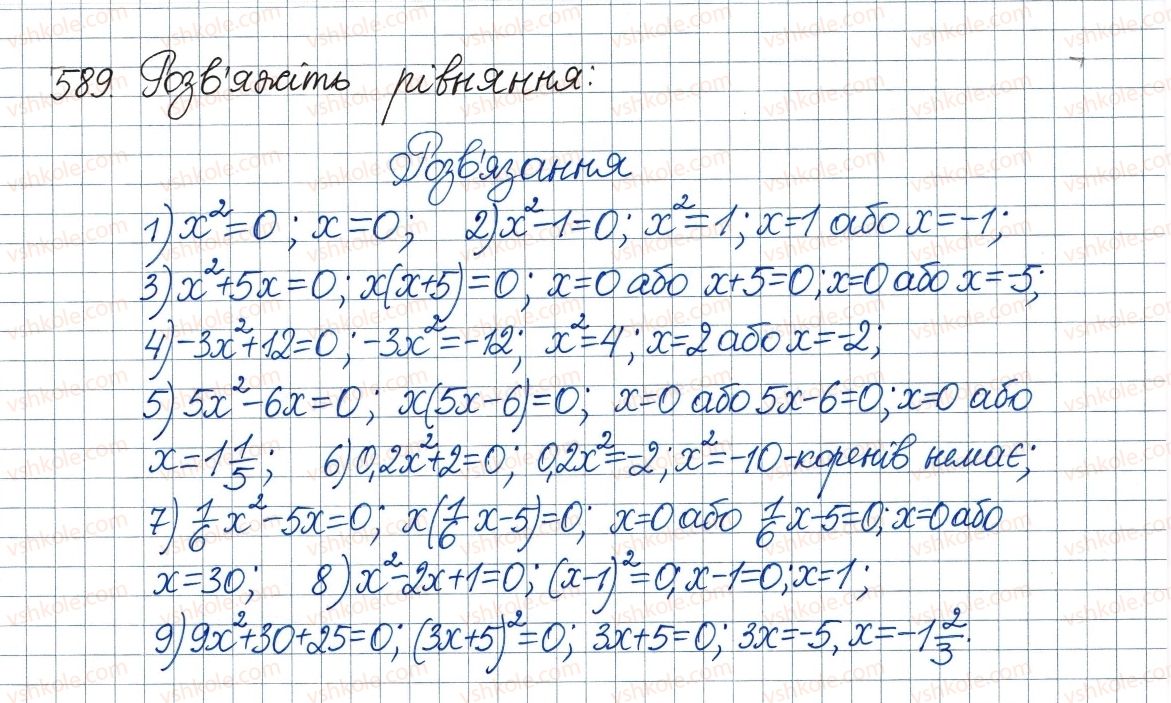 589. Розв'яжіть рівняння:
Розв'язання
1) x²=0; x=0; 2) x²-1=0; x²=1; x=1 або x=-1;
3) x²+5x=0; x(x+5)=0; x=0 або x+5=0; x=0 або x=-5;
4) -3x²+12=0; -3x²=-12; x²=4; x=2 або x=-2;
5) 5x²-6x=0; x(5x-6)=0; x=0 або 5x-6=0; x=0 або
x=1 1/5; 6) 0,2x²+2=0; 0,2x²=-2; x²=-10-коренів немає;
7) 1/6 x²-5x=0; x(1/6 x-5)=0; x=0 або 1/6 x-5=0; x=0 або
x=30; 8) x²-2x+1=0; (x-1)²=0; x-1=0; x=1;
9) 9x²+30+25=0; (3x+5)²=0; 3x+5=0; 3x=-5, x=-1 2/3.